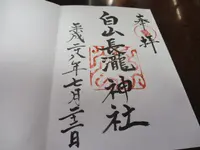 奉拝
白山長瀧神社
平成二十八年七月二十三日